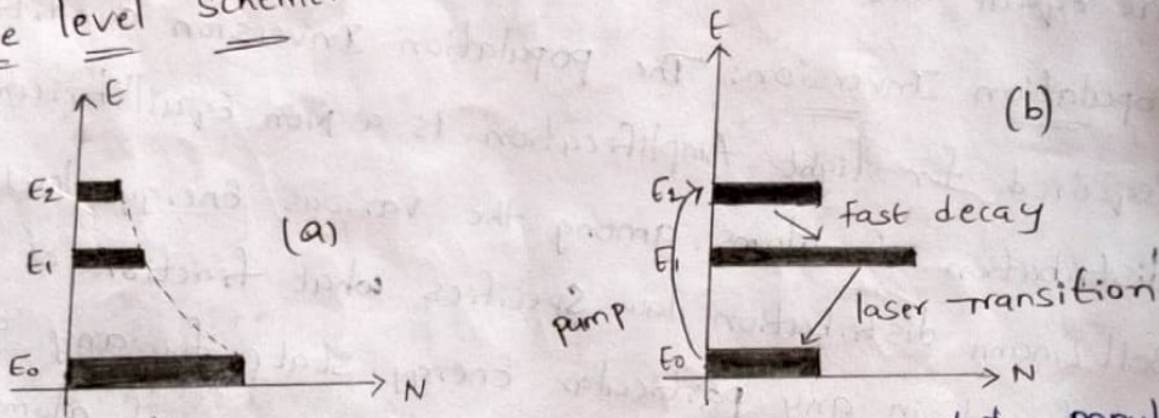 e level scheme
E
E2
(a)
E1
E0
N
E
(b)
E2
fast decay
E1
laser transition
pump
E0
N